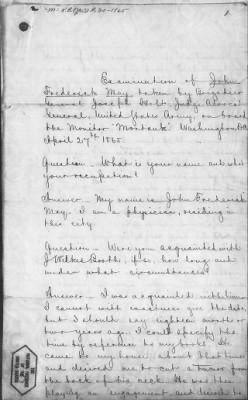 Examination of John
Frederick May, taken by Brigadier
General Joseph Holt, Judge Advocate
General, United States Army, on board
the Monitor Montauk Washington
April 27th 1865.
Question - What is your name and what
your occupation?
Answer - My name is John Frederick
May. I am a physician, residing in
this city.
Question - Were you acquainted with
J Wilkes Booth, if so, how long and
under what circumstances?
Answer - I was acquainted with him.
I cannot with exactness give the date,
but I should say eighteen months or
two years ago. I could specify the
time by reference to my books. He
came to my house about that time
and desired me to cut a tumor from
the back of his neck. He was then
playing an engagement and desired to